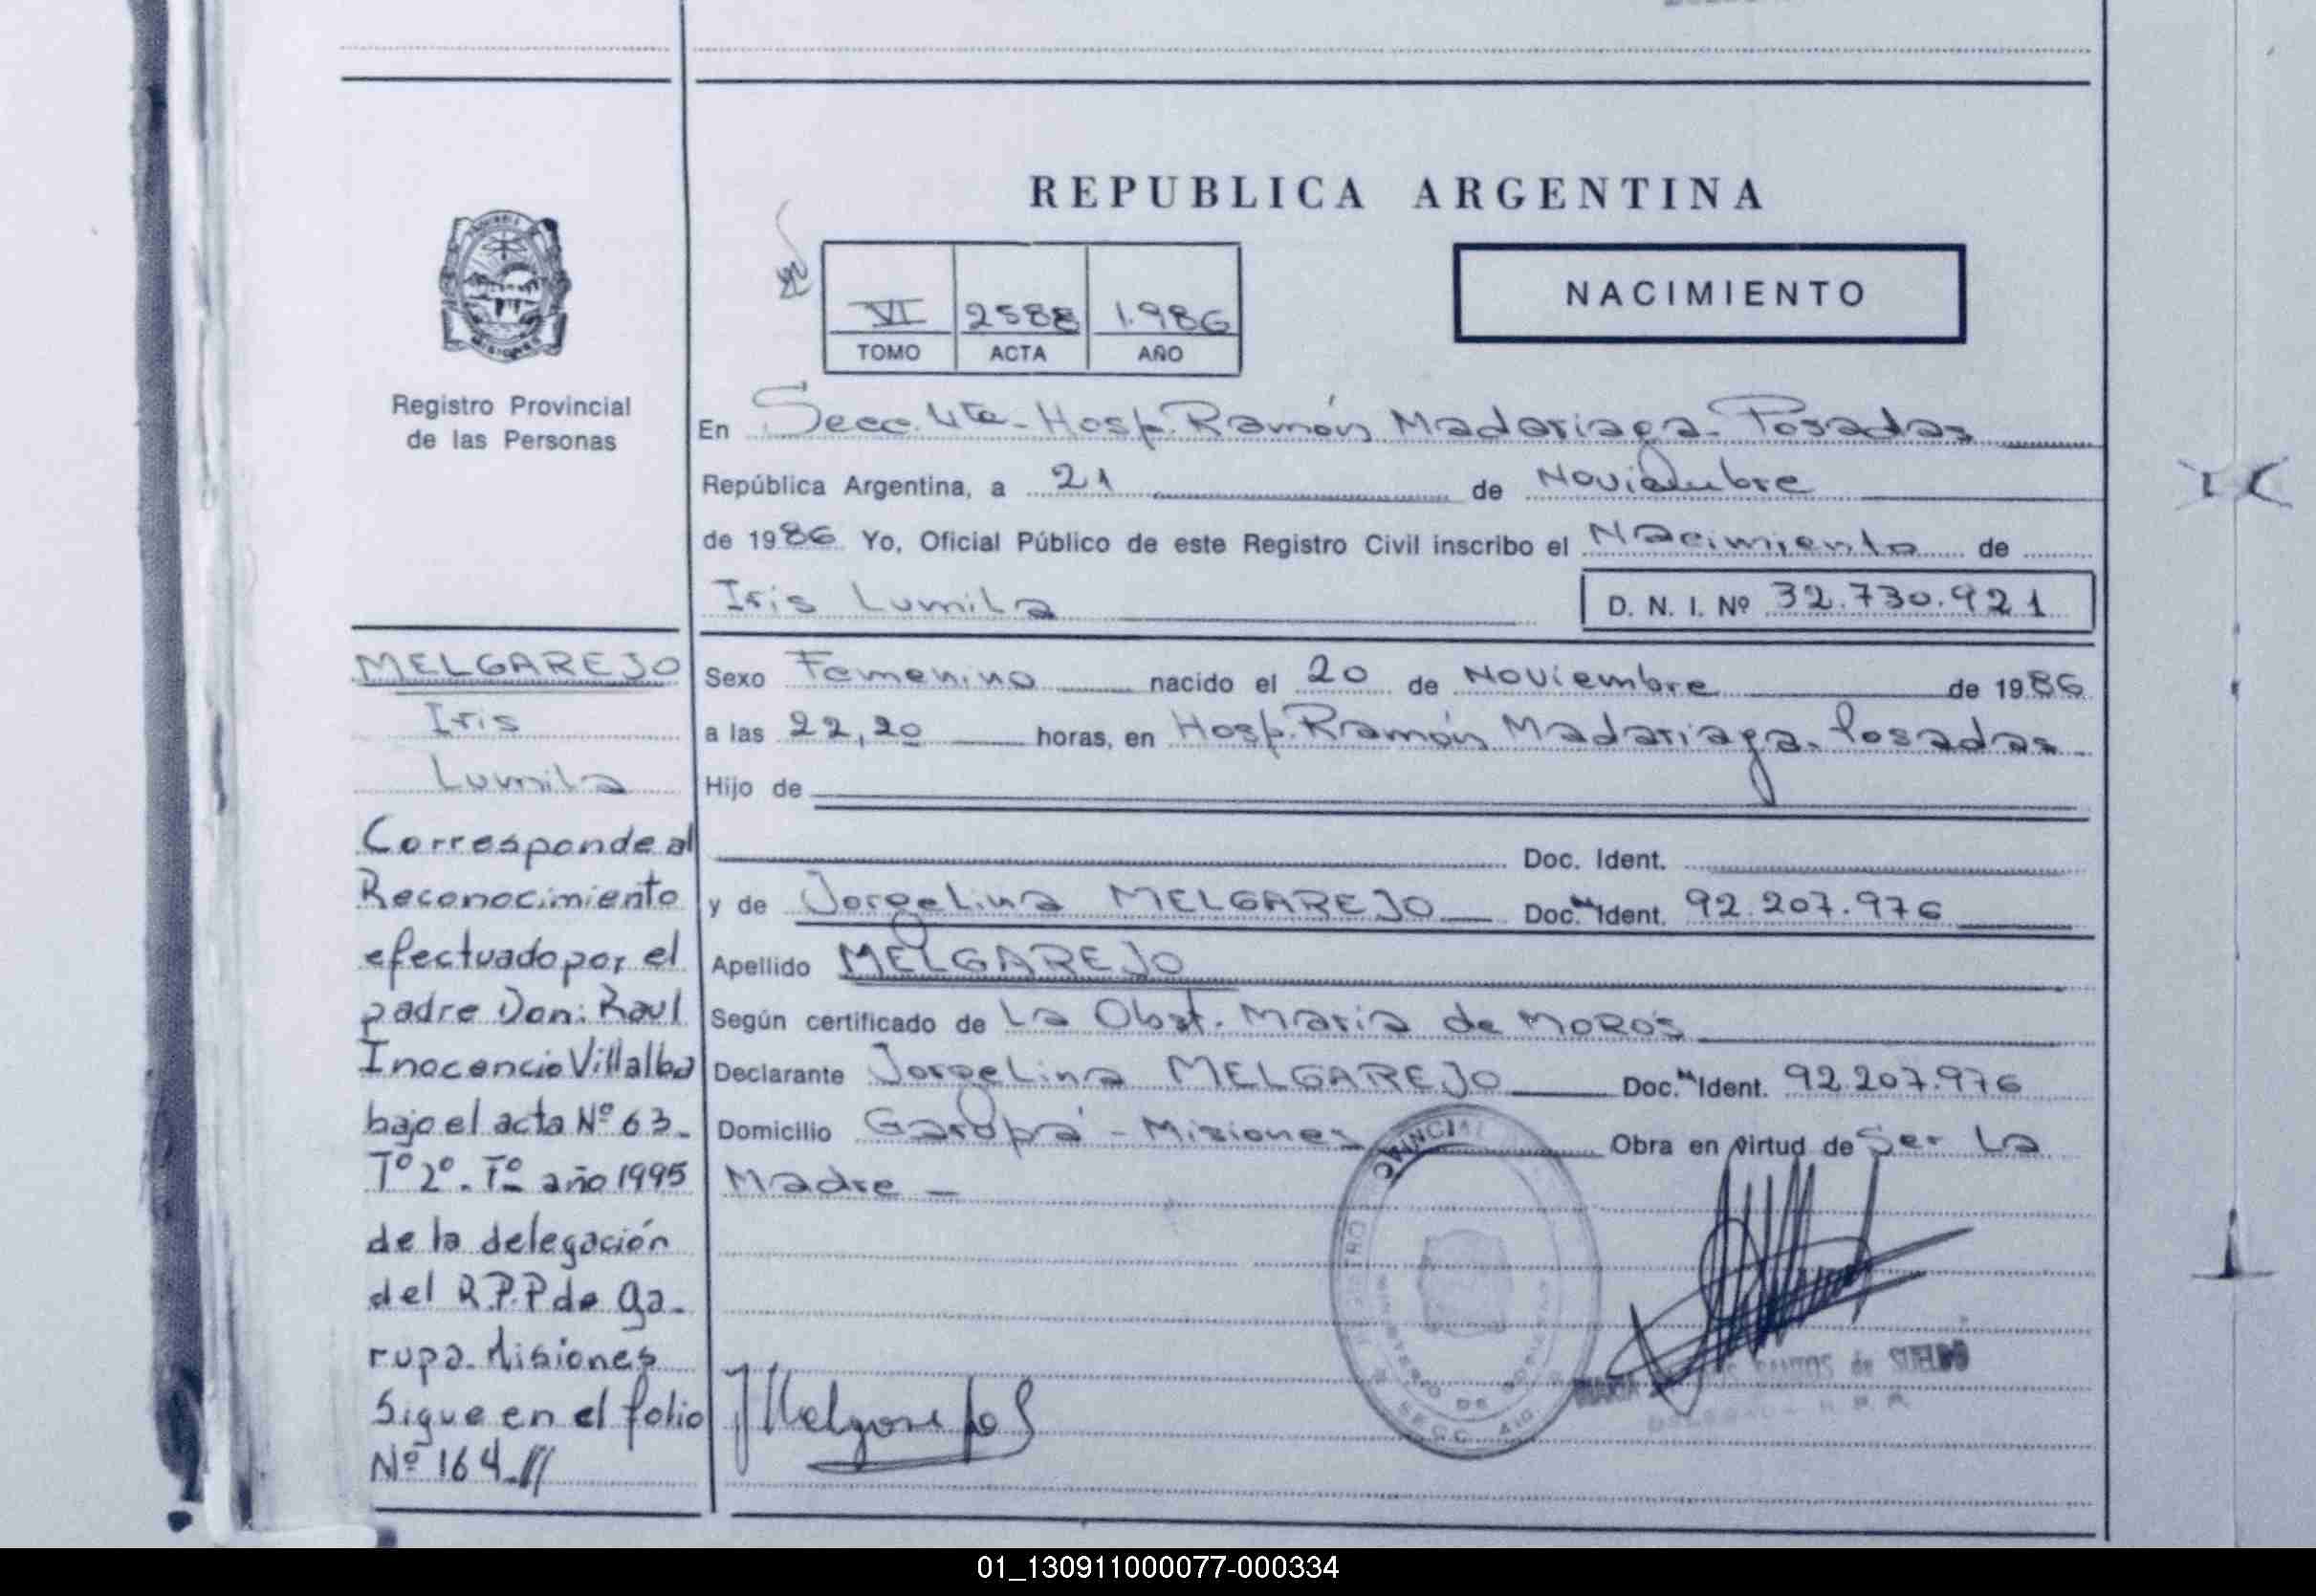 REPUBLICA ARGENTINA
NACIMIENTO
VI 2588 1.986
TOMO ACTA AÑO
Registro Provincial
de las Personas
En Secc. 4ta - Hosp. Ramón Madariaga - Posadas
República Argentina, a 21 de Noviembre
de 1986 Yo, Oficial Público de este Registro Civil inscribo el Nacimiento de
Iris Lumila D. N. I. Nº 32.730.921
Sexo Femenino nacido el 20 de Noviembre de 1986
a las 22,20 horas, en Hosp. Ramón Madariaga. Posadas
Hijo de
Doc. Ident.
y de Jorgelina MELGAREJO Doc. Ident. 92.207.976
Apellido MELGAREJO
Según certificado de La Obst. Maria de MOROS
Declarante Jorgelina MELGAREJO Doc. Ident. 92.207.976
Domicilio Garupá - Misiones Obra en virtud de Ser La
Madre -
MELGAREJO
Iris
Lumila
Corresponde al
Reconocimiento
efectuado por el
padre Don: Raul
Inocencio Villalba
bajo el acta Nº 63-
Tº 2º - Tº año 1995
de la delegación
del R.P.P de Ga-
rupa - Misiones
Sigue en el folio
Nº 164 //
JMelgarejo
SANTOS de SUELDO
SECC.
01_130911000077-000334